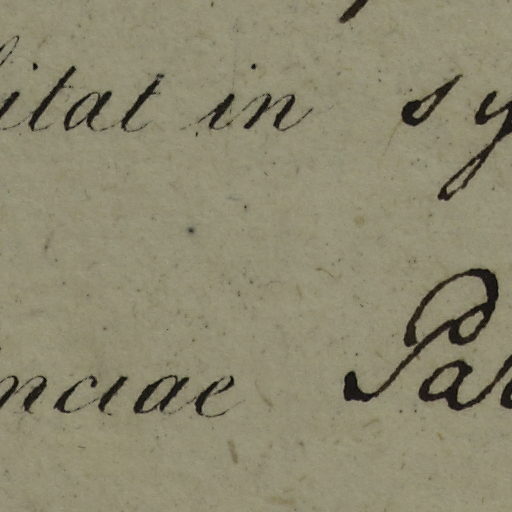 itat in sy
nciae Pa